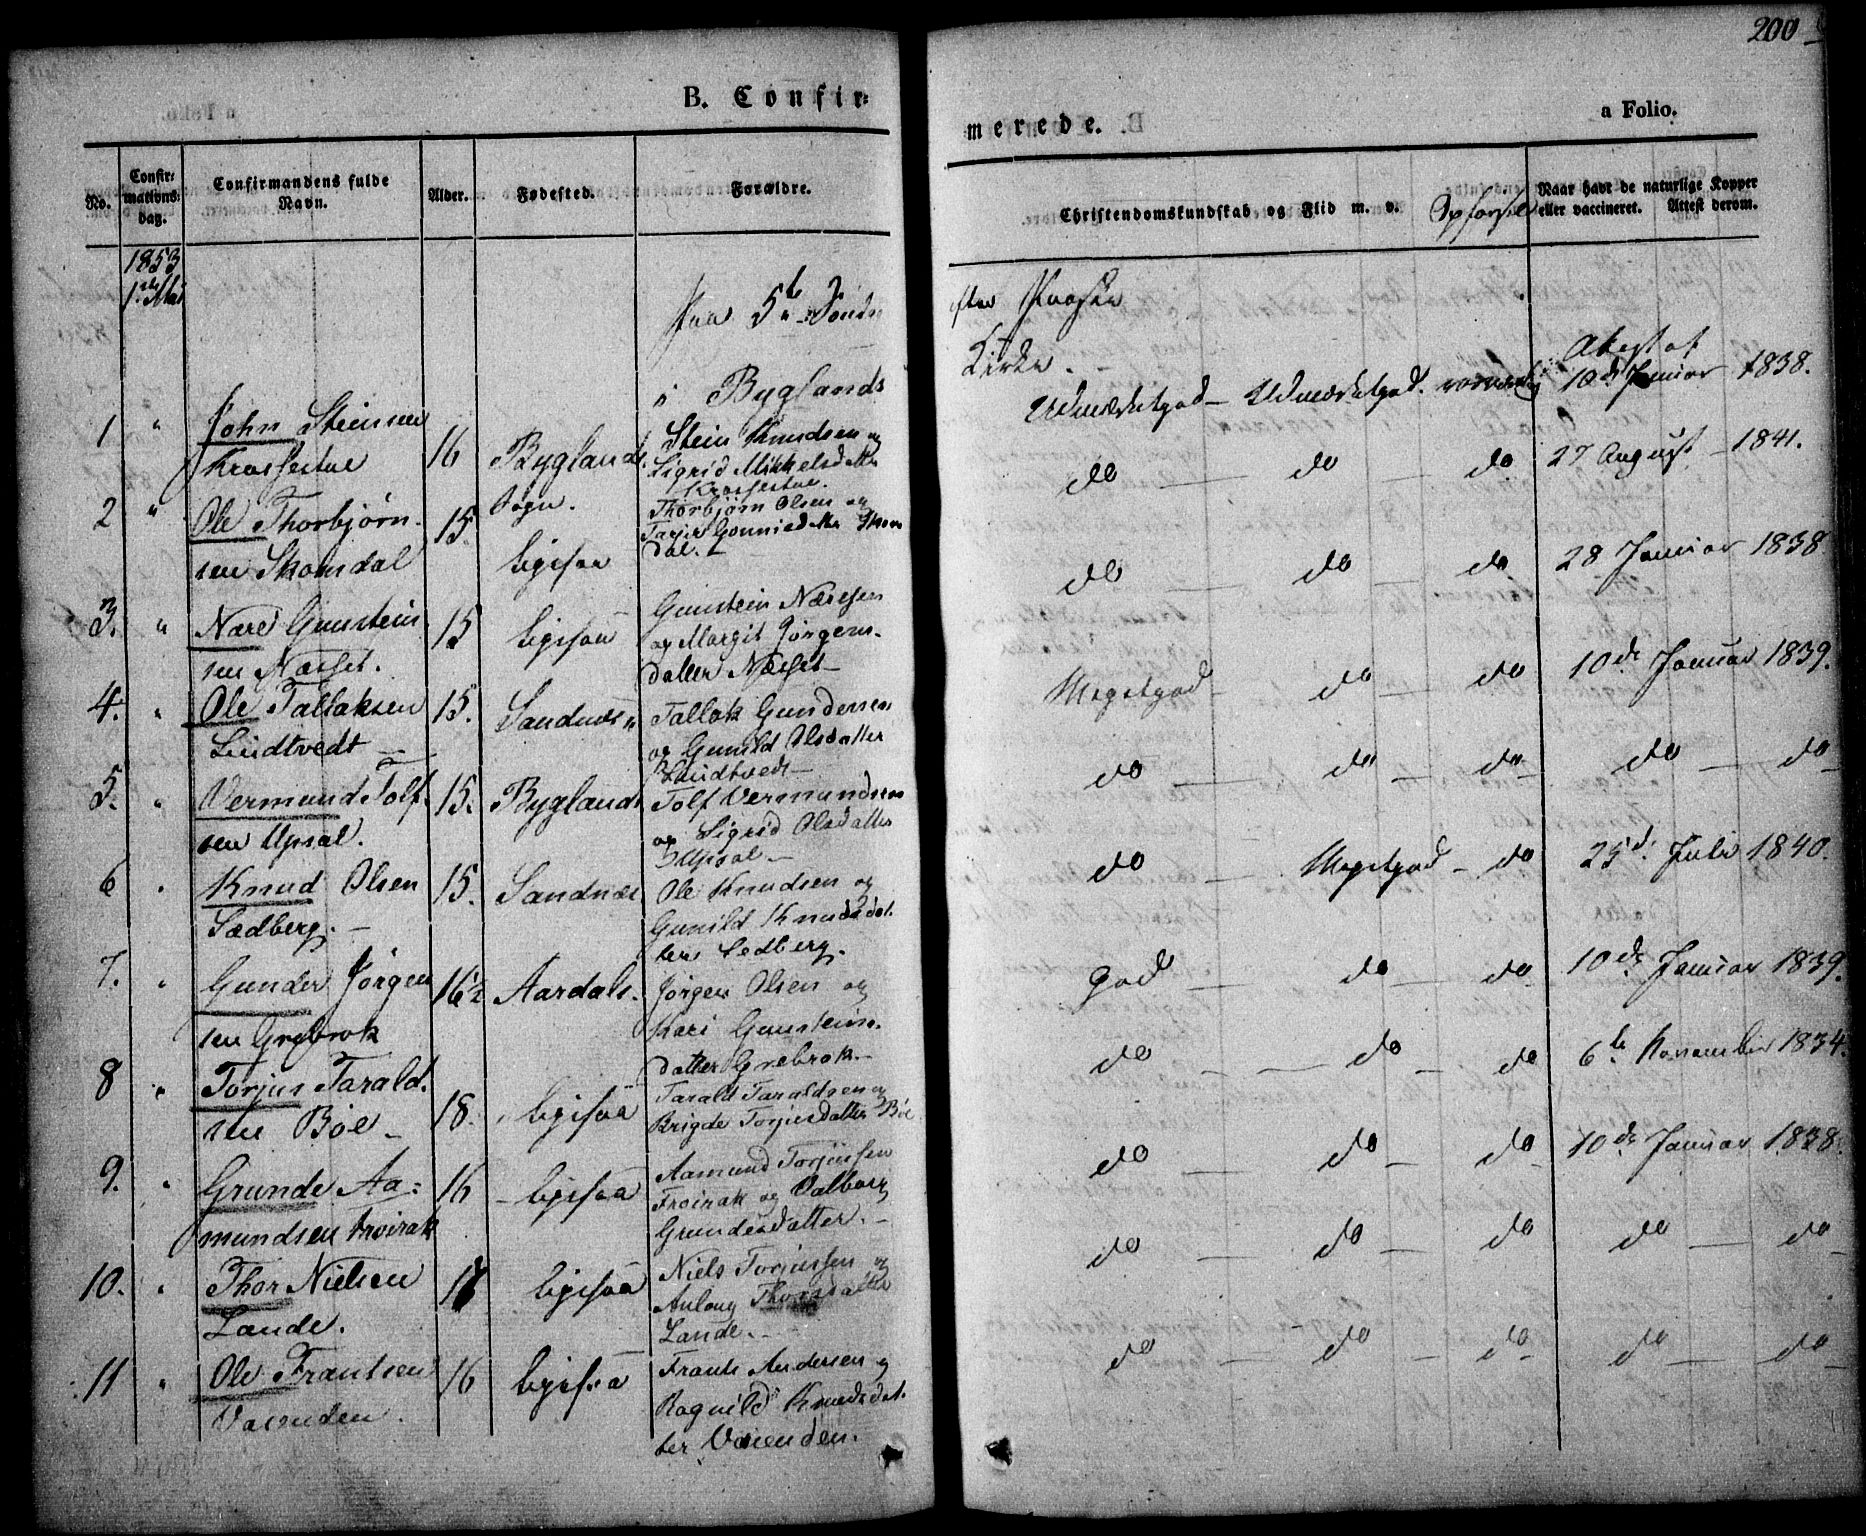 200
B. Confir=
merede.
a Folio.
No.
Confir=
mations=
dag.
Confirmandens fulde
Navn.
Alder.
Fødested.
Forældre.
Christendomskundskab og Flid m. v.
Opførsel
Naar havt de naturlige Kopper
eller vaccineret. Attest derom.
1853
1ste Mai
paa 5te Søndag
efter Paaske
i Byglands
Kirke.
1 " John Steinsen
Krosfestue
16
Byglands
Sogn.
Stein Knudsen og
Sigrid Mikkelsdatter
Krosfestue.
Udmærketgod — Udmærketgod.
Attest af
10de Januar 1838.
2 " Ole Thorbjørn-
sen Skomdal
15.
ligesaa
Thorbjørn Olsen og
Tarjer Gunnisdatter Skom
dal.
do — do — do
27 August 1841.
3. " Nare Gunstein-
sen Næsset.
15
ligesaa
Gunstein Næresen
og Margit Jørgens-
datter Næsset —
do — do — do
28 Januar 1838
4. " Ole Tallaksen
Lindtvedt —
15.
Sandnæs "
Tallak Gundersen
og Gunild Olsdatter
Lindtvedt —
Megetgod — do — do
10de Januar 1839.
5. " Vermund Tolf-
sen Upsal.
15.
Byglands
Tolf Vermundsen
og Sigrid Olsdatter
Upsal —
do — do — do — do — do —
6 " Knud Olsen
Sædberg. —
15.
Sandnæs
Ole Knudsen og
Gunild Knudsdat-
ter Sedberg.
do — Megetgod — do
25de Juli 1840.
7. " Gunder Jørgen
sen Grebrok
16½
Aardals.
Jørgen Olsen og
Kari Gunsteins-
datter Grebrok. —
God — do — do
10de Januar 1839.
8 " Torjus Tarald-
sen Bøe —
18.
ligesaa
Tarald Taraldsen og
Brigde Torjusdatter Bøe
do — do — do
6te November 1834.
9. " Grunde Aa=
mundsen Frøirak
16
— ligesaa
Aamund Torjussen
Frøirak og Valborg
Grundesdatter. —
do — do — do
10de Januar 1838.
10. " Thor Nielsen
Lande.
17
ligesaa
Niels Torjussen og
Anlaug Thorsdatter
Lande. —
do — do — do — do — do —
11 " Ole Frantsen
Vasenden.
16
ligesaa
Frants Andersen og
Ragnild Knudsdat-
ter Vasenden.
do — do — do — do — do —